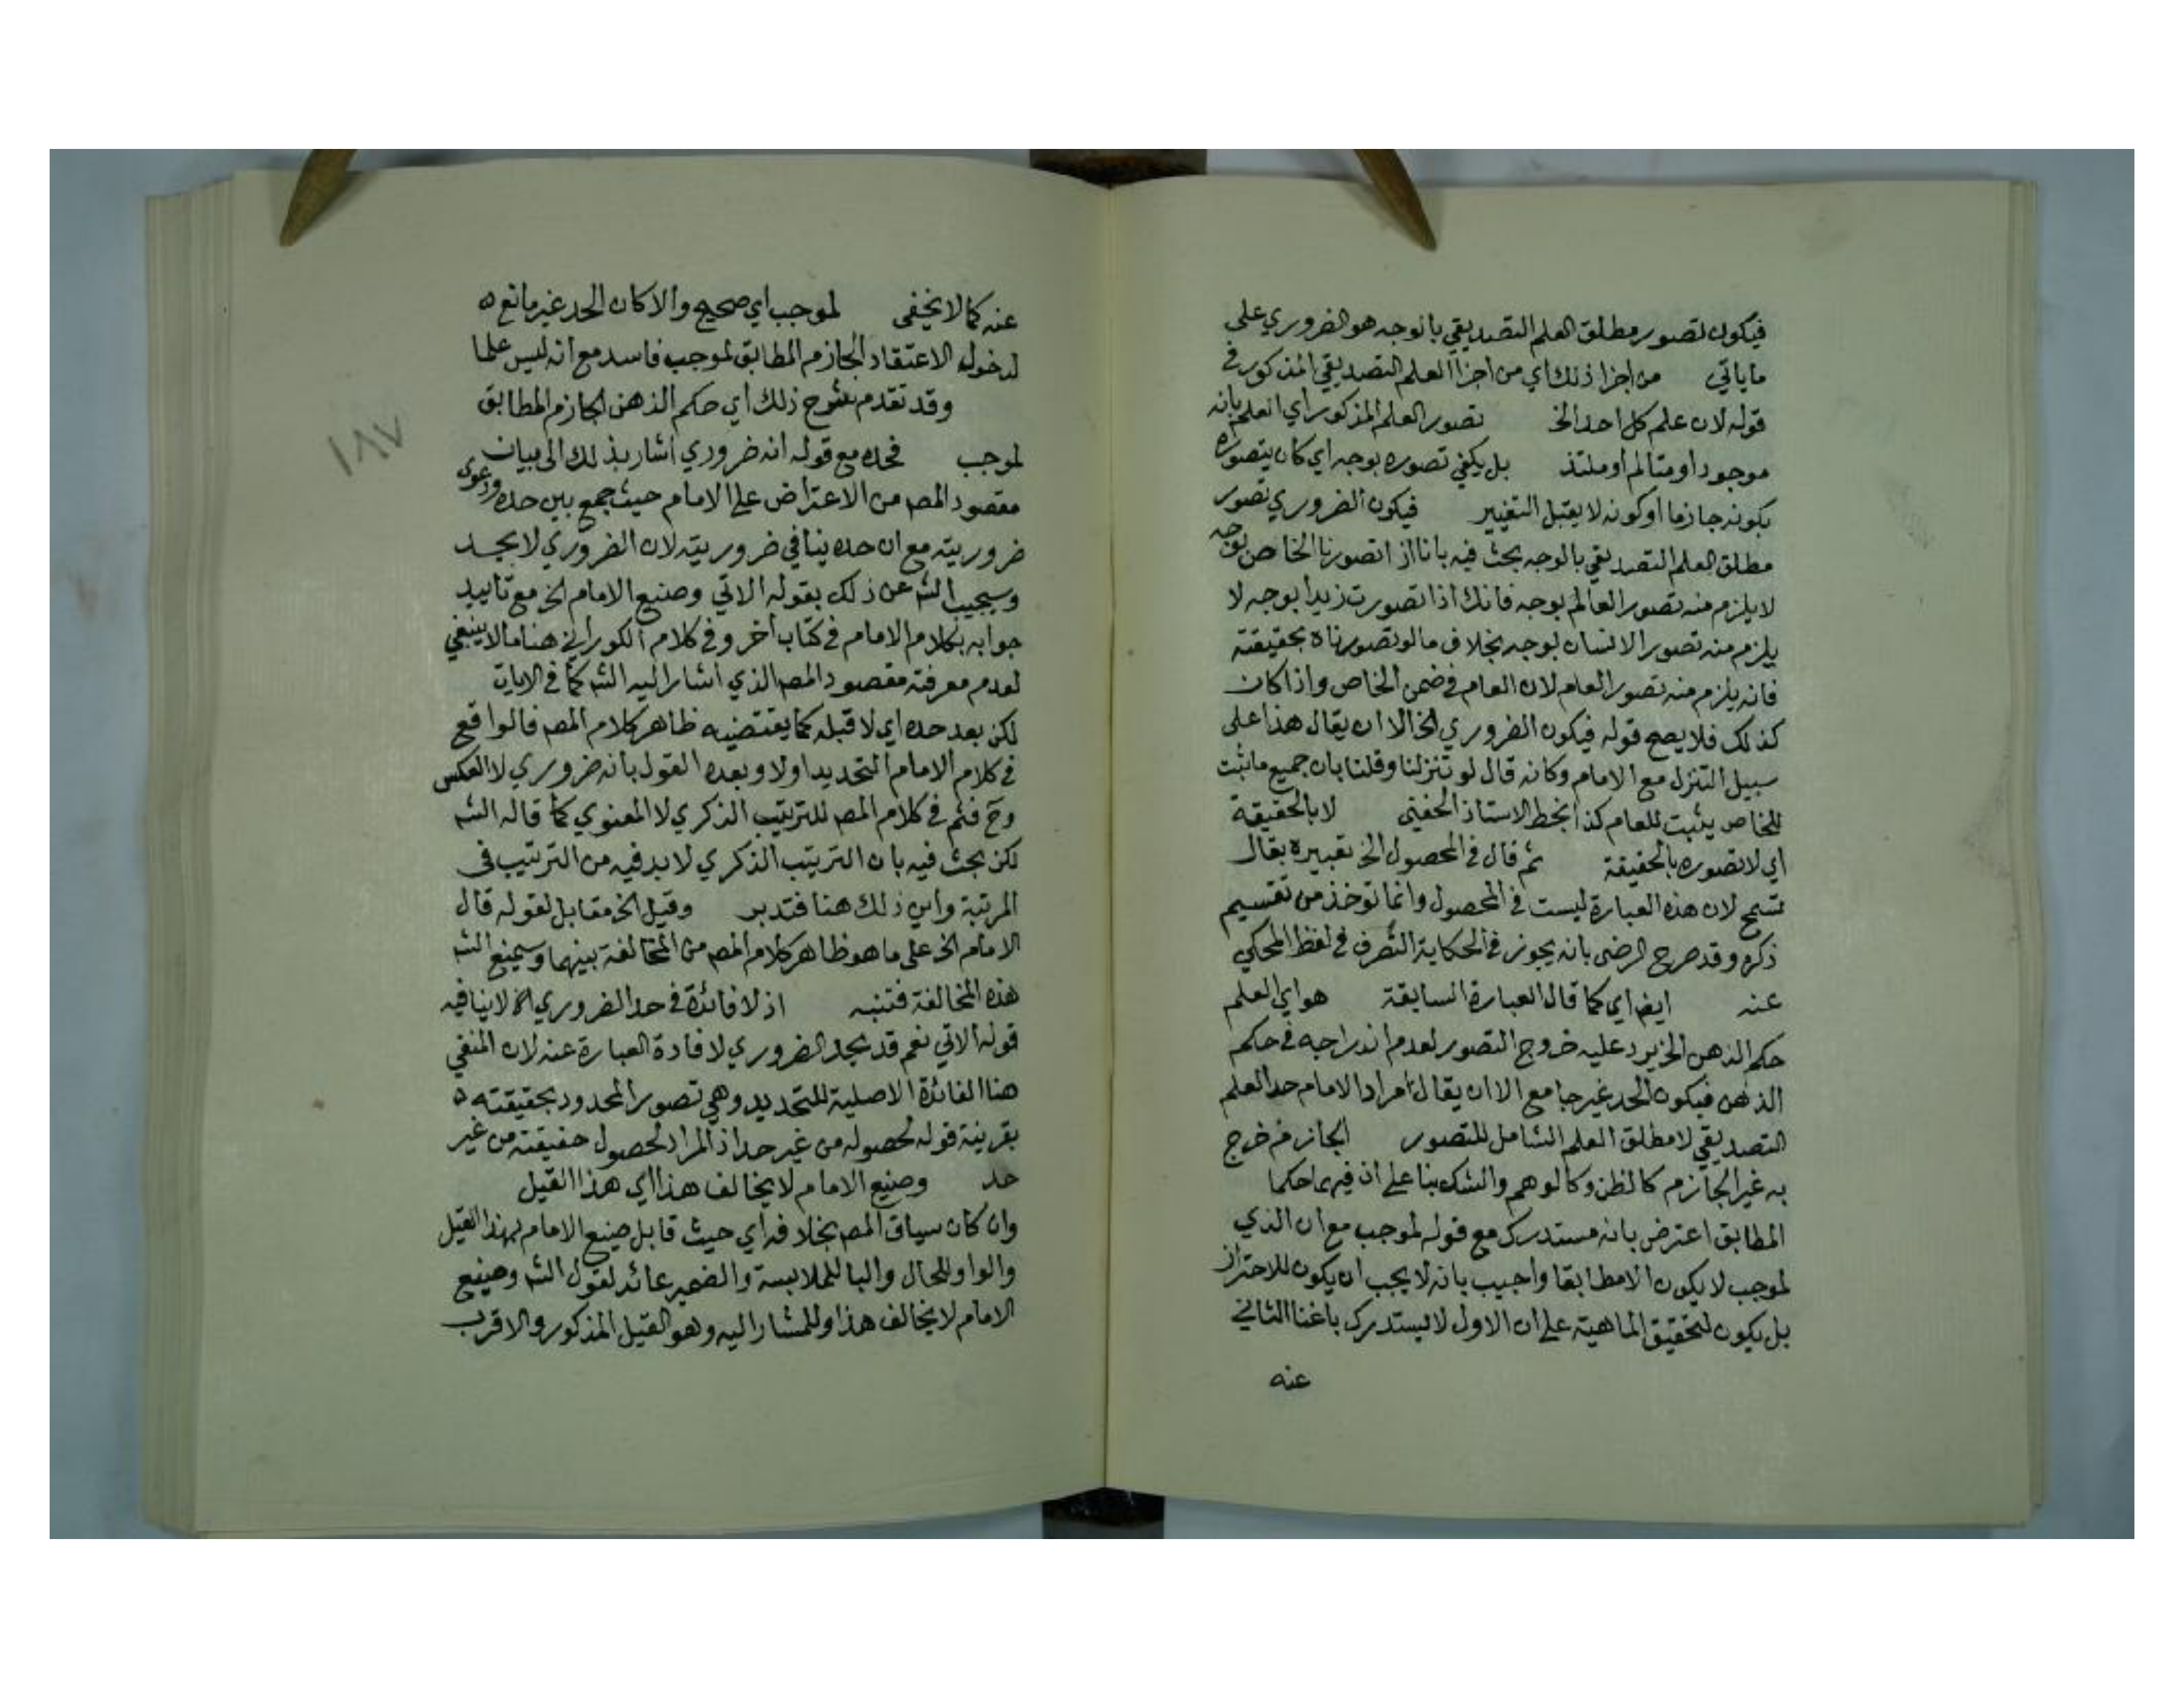 فيكون تصور مطلق العلم التصديقي بالوجه هو الضروري على
ما ياتي من اجزا ذلك اي من اجزا العلم التصديقي المذكور في
قوله لان علم كل احد الخ تصور العلم المذكور اي العلم بانه
موجود او متالم او ملتذ بل يكفي تصوره بوجه اي كان يتصوره
بكونه جازما او كونه لا يقبل التغيير فيكون الضروري تصور
مطلق العلم التصديقي بالوجه بحث فيه بانا اذا تصورنا الخاص بوجه
لا يلزم منه تصور العالم بوجه فانك اذا تصورت زيدا بوجه لا
يلزم منه تصور الانسان بوجه بخلاف ما لو تصورناه بحقيقته
فانه يلزم منه تصور العام لان العام في ضمن الخاص واذا كان
كذلك فلا يصح قوله فيكون الضروري الخ الا ان يقال هذا على
سبيل التنزل مع الامام وكانه قال لو تنزلنا وقلنا بان جميع ما ثبت
للخاص يثبت للعام كذا بخط الاستاذ الحفني لا بالحقيقة
اي لا تصوره بالحقيقة ثم قال في المحصول الخ تعبيره بقال
تسمح لان هذه العبارة ليست في المحصول وانما توخذ من تقسيم
ذكره وقد صرح الرضى بانه يجوز في الحكاية التصرف في لفظ المحكي
عنه ايضا اي كما قال العبارة السابقة هو اي العلم
حكم الذهن الخ يرد عليه خروج التصور لعدم اندراجه في حكم
الذهن فيكون الحد غير جامع الا ان يقال مراد الامام حد العلم
التصديقي لا مطلق العلم الشامل للتصور الجازم خرج
به غير الجازم كالظن وكالوهم والشك بنا على ان فيهما حكما
المطابق اعترض بانه مستدرك مع قوله لموجب مع ان الذي
لموجب لا يكون الا مطابقا واجيب بانه لا يجب ان يكون للاحتراز
بل يكون لتحقيق الماهية على ان الاول لا يستدرك باغنا الثاني
عنه
عنه كما لا يخفى لموجب اي صحيح والا كان الحد غير مانع ه
لدخول الاعتقاد الجازم المطابق لموجب فاسد مع انه ليس علما
وقد تقدم شرح ذلك اي حكم الذهن الجازم المطابق
١٨٧
لموجب فحده مع قوله انه ضروري اشار بذلك الى بيان
مقصود المصم من الاعتراض على الامام حيث جمع بين حده ودعوى
ضروريته مع ان حده ينافي ضروريته لان الضروري لا يحد
وسيجيب الشم عن ذلك بقوله الاتي وصنيع الامام الخ مع تاييد
جوابه بكلام الامام في كتاب اخر وفي كلام الكوراني هنا ما لا ينبغي
لعدم معرفته مقصود المصم الذي اشار اليه الشم كما في الايات
لكن بعد حده اي لا قبله كما يقتضيه ظاهر كلام المصم فالواقع
في كلام الامام التحديد اولا وبعده القول بانه ضروري لا العكس
وح فثم في كلام المصم للترتيب الذكري لا المعنوي كما قاله الشم
لكن بحث فيه بان الترتيب الذكري لا بد فيه من الترتيب في
المرتبة واين ذلك هنا فتدبر وقيل الخ مقابل لقوله قال
الامام الخ على ما هو ظاهر كلام المصم من المخالفة بينهما وسيمنع الشم
هذه المخالفة فتنبه اذ لا فائدة في حد الضروري الخ لا ينافيه
قوله الاتي نعم قد يحد الضروري لافادة العبارة عنه لان المنفي
هنا الفائدة الاصلية للتحديد وهي تصور المحدود بحقيقته ه
بقرينة قوله لحصوله من غير حد اذ المراد لحصول حقيقته من غير
حد وصنيع الامام لا يخالف هذا اي هذا القيل
وان كان سياق المصم بخلافه اي حيث قابل صنيع الامام بهذا القيل
والواو للحال والبا للملابسة والضمير عائد لقول الشم وصنيع
الامام لا يخالف هذا وللمشار اليه وهو القيل المذكور والاقرب